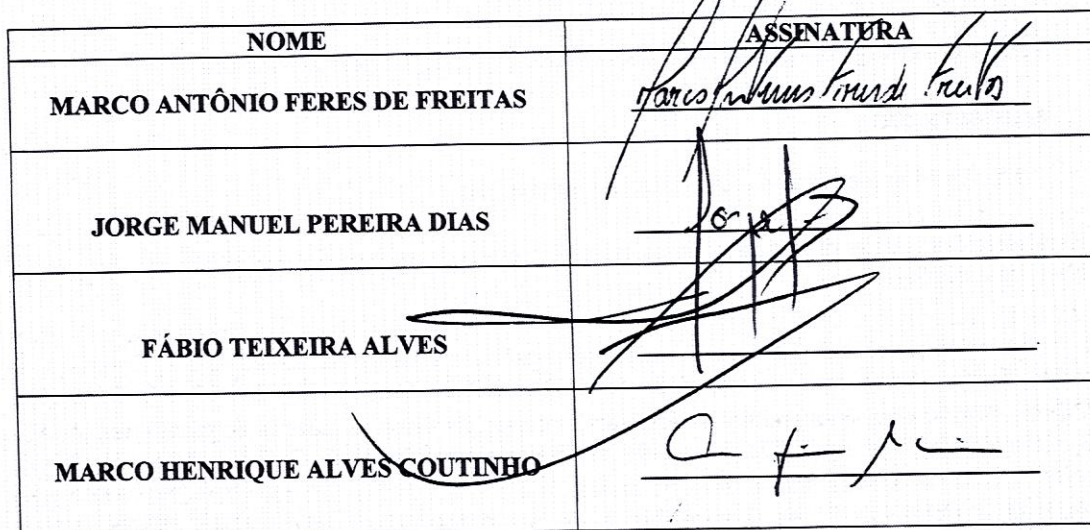 NOME ASSINATURA
MARCO ANTÔNIO FERES DE FREITAS
JORGE MANUEL PEREIRA DIAS
FÁBIO TEIXEIRA ALVES
MARCO HENRIQUE ALVES COUTINHO